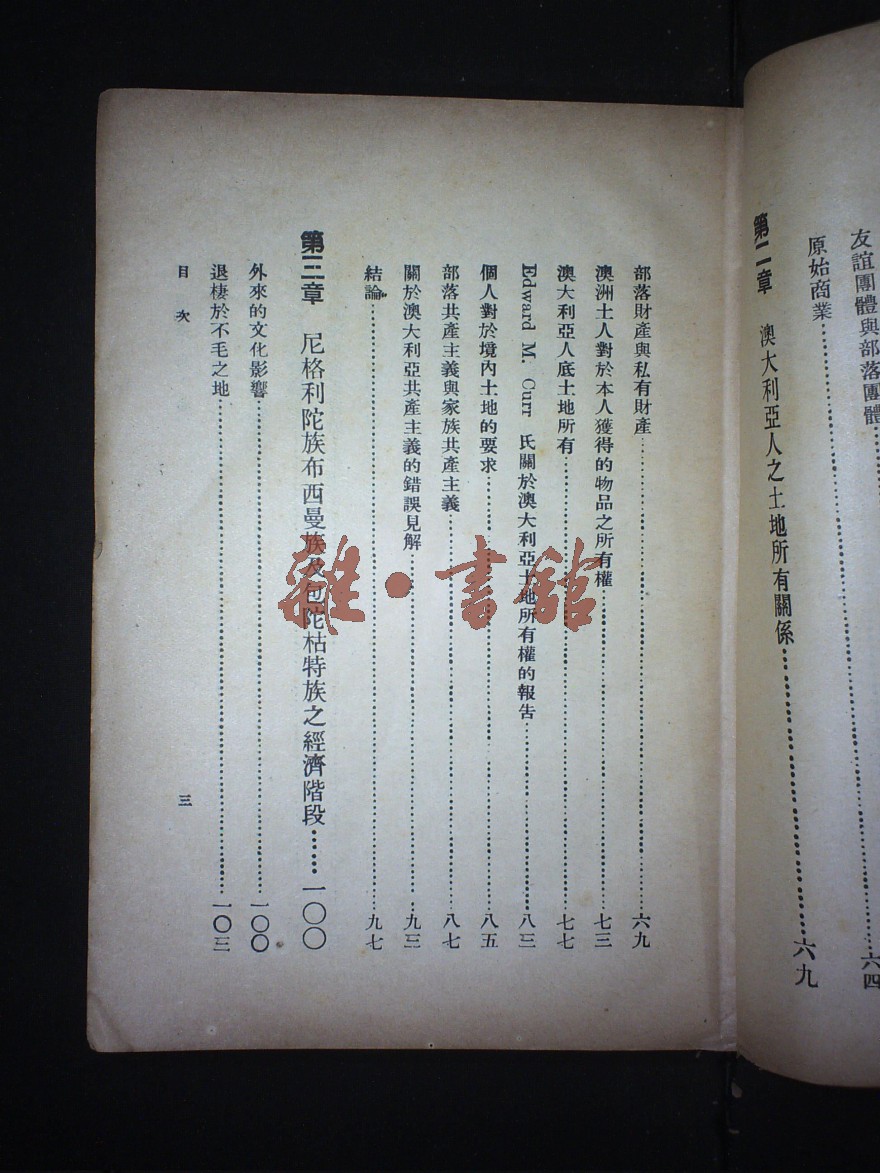 友誼團體與部落團體……六四
原始商業……
第二章 澳大利亞人之土地所有關係……六九
部落財產與私有財產……六九
澳洲土人對於本人獲得的物品之所有權……七三
澳大利亞人底土地所有……七七
Edward M. Curr 氏關於澳大利亞土地所有權的報告……八三
個人對於境內土地的要求……八五
部落共產主義與家族共產主義……八七
關於澳大利亞共產主義的錯誤見解……九三
結論……九七
第三章 尼格利陀族布西曼族及包陀枯特族之經濟階段……一〇〇
外來的文化影響……一〇〇
退棲於不毛之地……一〇三
目次
三
雜·書館